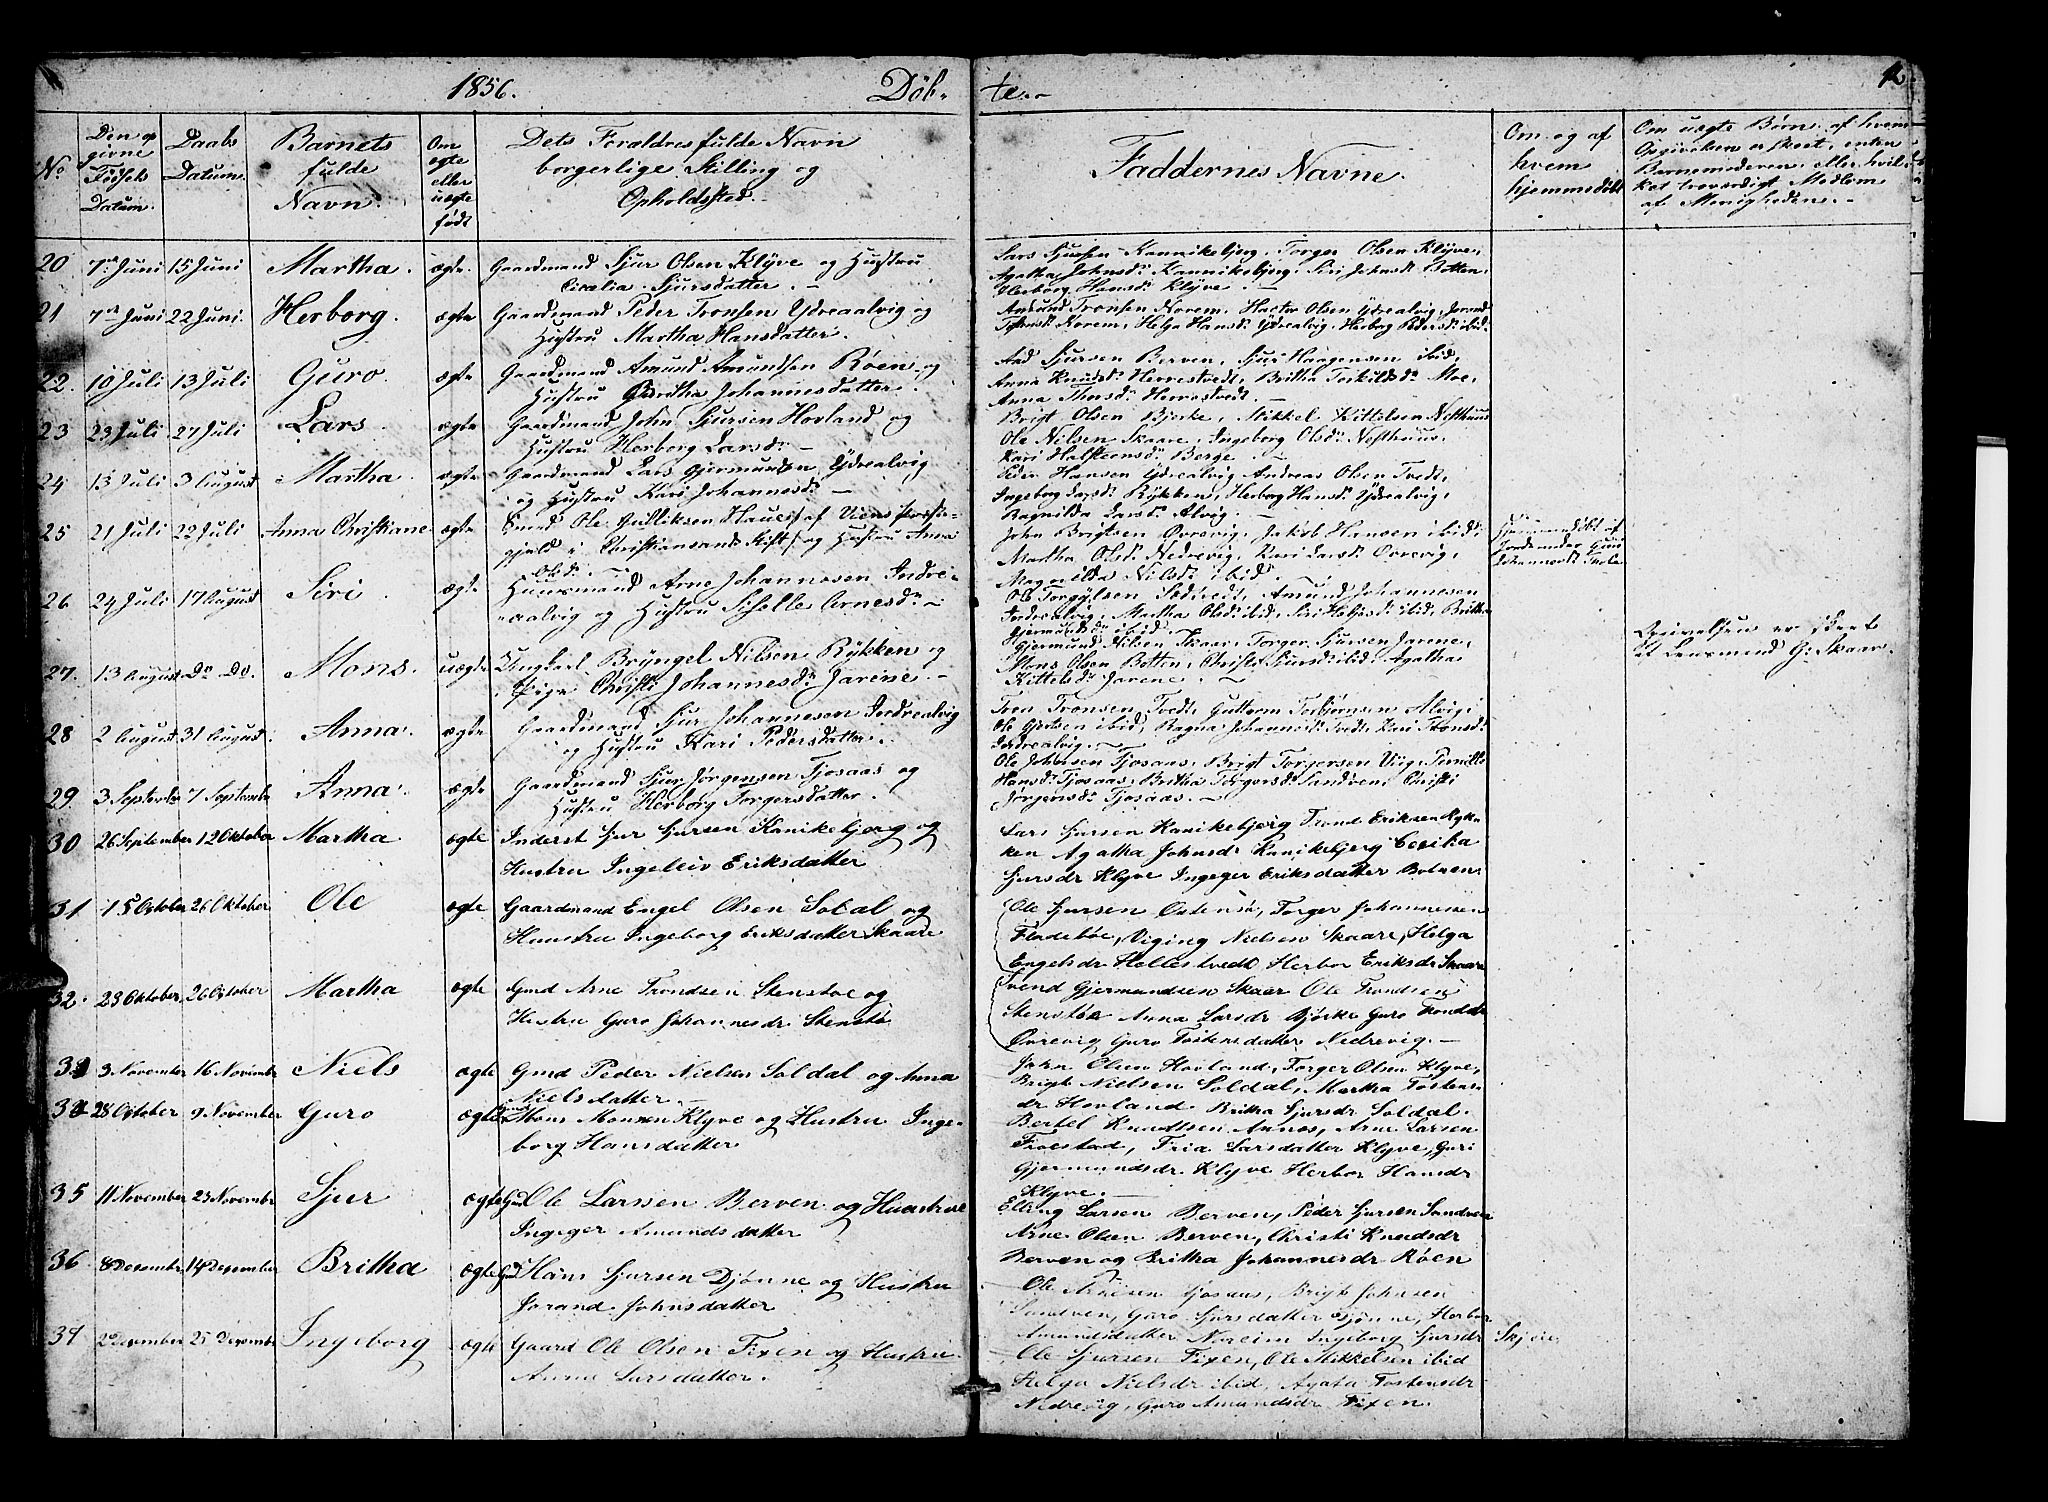 1856. Döb- te.- 12
No
Den op givne Fødsels Datum.
Daabs Datum.
Barnets fulde Navn.
Om ægte eller uægte født
Dets Foraldres fulde Navn borgerlige Stilling og Opholdssted.
Faddernes Navne.
Om og af hvem hjemmedöbt
Om uægte Børn: af hvem Opgivelsen er skeet, enten Barnemoderen, eller hvilket troværdigt Medlem af Menigheden. -
20 7de Juni 15 Juni Martha. ægte. Gaardmand Sjur Olsen Klÿve og Hustru
Cicælia Sjursdatter. -
Lars Sjursen Kannikebjerg. Torger Olsen Klÿve,
Agatha Johnsd: Kannikebjerg. Siri Johnsd: Botten,
Herborg Hansd: Klÿve. -
21 7de Juni 22 Juni. Herborg. ægte Gaardmand Peder Tronsen Ydreaalvig og
Hustru Martha Hansdatter.
Amund Tronsen Norem, Olsen Ydrealvig,
Norem, Helga Hansd: Ydrealvig, Herborg Pedersd: ibid.
22. 10 Juli 13 Juli Guro. ægte Gaardmand Amund Amundsen Röen og
Hustru Britha Johannesdatter.
Aad Sjursen Berven, Sjur Haagensen ibid,
Anna Knudsd: Herrestvedt, Britha Torkildsd: Moe,
Anna Thosd: Herrestvedt. -
23 23 Juli 27 Juli Lars. ægte Gaardmand John Sjursen Hovland og
Hustru Herborg Larsd: -
Brigt Olsen Bjerke, Mikkel Kittelsen Nesthuus
Ole Nilsen Skaare, Ingeborg Olsd: Nesthuus.
Kari Halsteensd: Berge. -
24 13 Juli 3 August Martha. ægte Gaardmand Lars Gjermundsen Ydrealvig
og Hustru Kari Johannesd: -
Peder Hansen Ydrealvig Andreas Olsen Tvedt,
Ingeborg Larsd: Rÿkken, Herborg Hansd: Ydrealvig,
Ragnilda Larsd: Alvig. -
25 21 Juli 22 Juli Anna Christiane ægte Ole Gulliksen af
gjeld i Christiansands Stift og Hustru Anna
Olsd: -
John Brigtsen Övrevig. Jakob Hansen ibid.
Martha Olsd: Nedrevig, Kari Larsd: Övrevig,
Magnilda Nilsd: ibid.
Hjemmedöbt af
Jordemoder Guri
Johannesd:
26 24 Juli 17 August Siri. ægte Huusmand Arne Johannesen Indre-
aalvig og Hustru Sihelle Arnesd: -
Ole Torgÿlsen Amund Johannesen
Indrealvig, Martha Olsd: ibid, Siri Heljesd: ibid, Britha
Gjermundsd: ibid.
27. 13 August Do Do. Mons. uægte Ungkarl Brÿngel Nilsen Rÿkken og
Pige Christi Johannesd: Jarene. -
Gjermund Nilsen Skaar, Torger Sjursen Jarene,
Mons Olsen Botten, Christi Sjursd: ibid, Agatha
Kittelsd: Jarene. -
Opgivelsen er skeet
af Lensmand G. Skaar.
28 2 August 31 August. Anna. ægte Gaardmand Sjur Johannesen Indrealvig
og Hustru Kari Pedersdatter. -
Sven Tronsen Tvedt, Guttorm Torbjørnsen Alvig,
Ole Gjertsen ibid, Ragna Johannesd: Tvedt, Kari Tronsd:
Indrealvig. -
29 3 September 7 September Anna. ægte Gaardmand Sjur Jørgensen Tjosaas og
Hustru Herborg Torgersdatter.
Ole Johnsen Tjosaas, Brigt Torgersen Viig, Pernille
Hansd: Tjosaas, Britha Torgersd: Sandven, Christi
Jørgensd: Tjosaas. -
30 26 September 12 Oktober Martha ægte Inderst Sjur Sjursen Kanikebjerg og
Hustru Ingeleiv Eriksdatter
Lars Sjursen Kanikebjerg Trond Eriksen Ryk-
ken Agatha Johnsdr Kanikebjerg Cecilia
Sjursdr Klyve Ingeger Eriksdatter Botnen.
31 15 October 26 Oktober Ole ægte Gaardmand Engel Olsen Soldal og
Huustru Ingeborg Eriksdatter Skaare
Ole Sjursen Östensö, Torger Johannesen
Fladebøe, Viging Nielsen Skaare, Helga
Engelsdr Hollestvedt Herbor Eriksdr Skaare
32. 23 Oktober 26 October Martha ægte Gmd Arne Trondsen Stenstøe og
Hustru Guro Johannesdr Stenstø
Svend Gjermundsen Skaar Ole Trondsen
Stenstøe Anna Larsdr Bjørke Guro Trondsdr
Övrevig Guro Tostensdatter Nedrevig. -
33 3 November 16 November Niels ægte Gmd Peder Nielsen Soldal og Anna
Nielsdatter. -
John Olsen Hovland, Torger Olsen Klyve,
Brigt Nielsen Soldal, Martha Tostens-
dr Hovland Britha Sjursdr Soldal.
34 28 October 9 November Guro ægte Hans Monsen Klyve og Hustru Inge-
borg Hansdatter
Bertel Knudtsen Aunos, Arne Larsen
Froestad, Tria Larsdatter Klyve, Guri
Gjermundsdr Klyve Herbor Hansdr
Klyve. -
35 11 November 23 November Sjur ægte Gmd Ole Larsen Berven og Huustrue
Ingeger Amundsdatter
Elling Larsen Berven, Peder Sjursen Sandven
Arne Olsen Berven, Christi Knudsdr
Berven og Britha Johannesdr Røen
36 8 December 14 December Britha ægte Gmd Hans Sjursen Djønne og Hustru
Jorand Johnsdatter
Ole Arnesen Tjosaas, Brigt Johnsen
Sandven, Guro Sjursdatter Djønne, Herbor
Amundsdatter Noreim Ingeborg Sjursdr Skjeie,
37 2 December 25 December Ingeborg ægte Gaard Ole Olsen Fixen og Hustru
Anna Larsdatter.
Ole Sjursen Fixen, Ole Mikkelsen ibid
Helga Nielsdr ibid, Agata Tostensdr
Nedrevig, Guro Amundsdr Fixen.